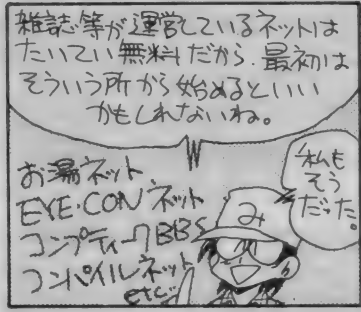 雑誌等が運営しているネットは
たいてい無料だから、最初は
そういう所から始めるといい
かもしれないね。
私も
そう
だった。
お湯ネット
EYE・CONネット
コンプティークBBS
コンパイルネット
etc
み